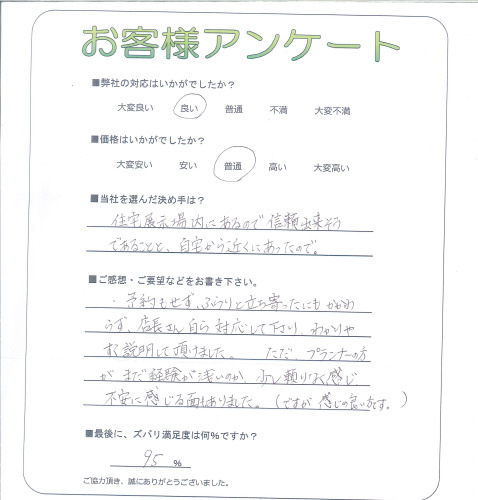 お客様アンケート
■弊社の対応はいかがでしたか？
大変良い 良い 普通 不満 大変不満
■価格はいかがでしたか？
大変安い 安い 普通 高い 大変高い
■当社を選んだ決め手は？
住宅展示場内にあるので信頼出来そう
であることと、自宅から近くにあったので。
■ご感想・ご要望などをお書き下さい。
・予約もせず、ぶらりと立ち寄ったにもかかわ
らず、店長さん自ら対応して下さり、わかりや
すく説明して頂けました。 ただ、プランナーの方
がまだ経験が浅いのか、少し頼りなく感じ
不安に感じる面もありました。（ですが感じの良い方です。）
■最後に、ズバリ満足度は何%ですか？
95 %
ご協力頂き、誠にありがとうございました。